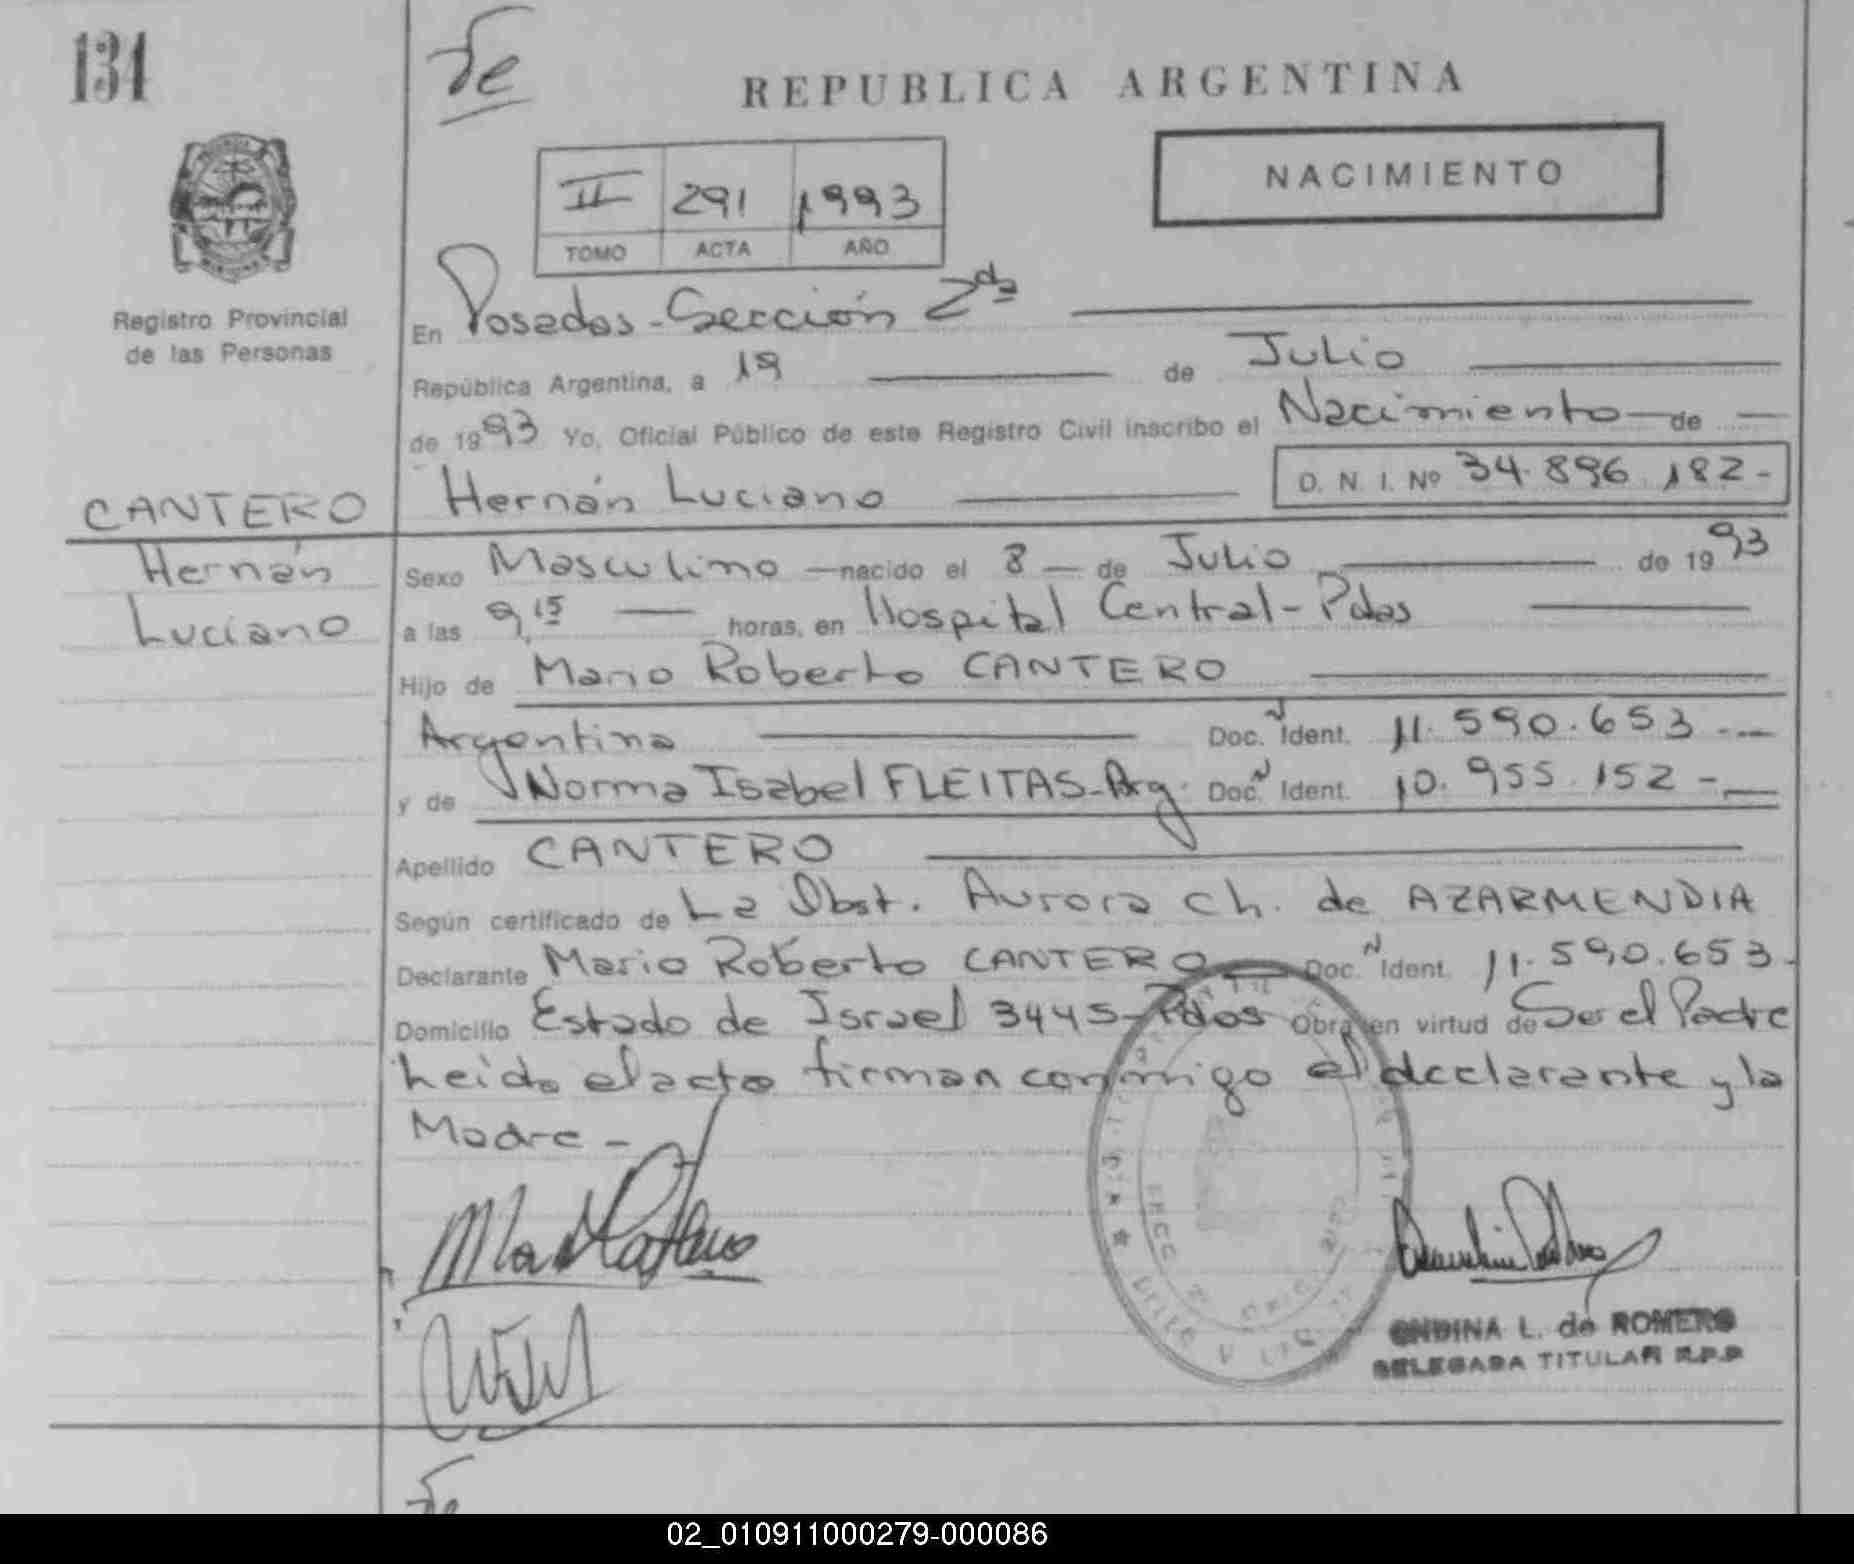 134
Fe
REPUBLICA ARGENTINA
NACIMIENTO
II 291 1993
TOMO ACTA AÑO
Registro Provincial
de las Personas
En Posadas - Sección 2da
República Argentina, a 19 de Julio
de 1993 Yo, Oficial Público de este Registro Civil inscribo el Nacimiento de
Hernán Luciano D. N. I. Nº 34.896.182-
CANTERO
Hernán
Luciano
Sexo Masculino nacido el 8 de Julio de 1993
a las 9,15 horas, en Hospital Central - Pdas
Hijo de Mario Roberto CANTERO
Argentina Doc. N Ident. 11.590.653.-
y de Norma Isabel FLEITAS-Arg. Doc. N Ident. 10.955.152-
Apellido CANTERO
Según certificado de La Obst. Aurora Ch. de AZARMENDIA
Declarante Mario Roberto CANTERO Doc. N Ident. 11.590.653.
Domicilio Estado de Israel 3445-Pdas Obra en virtud de Ser el Padre
Leida el acta firman conmigo el declarante y la
Madre -
ONDINA L. de ROMERO
DELEGADA TITULAR R.P.P
Fe
02_010911000279-000086